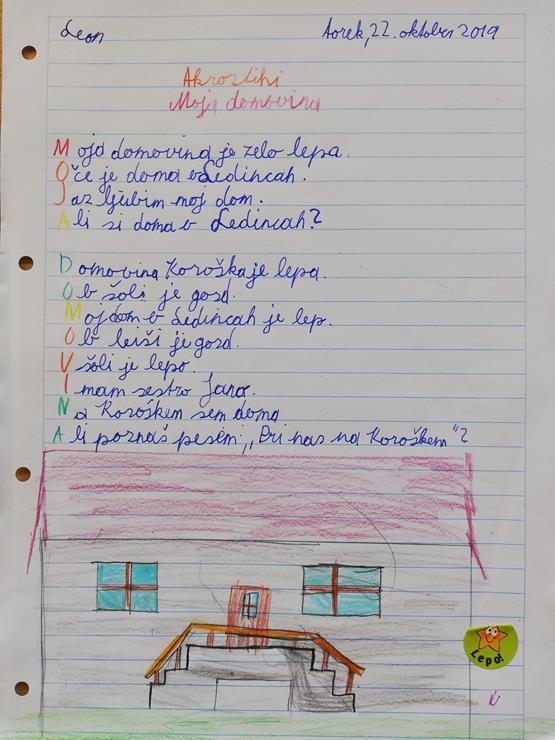 Leon
torek, 22. oktober 2019
Akrostihi
Moja domovina
Moja domovina je zelo lepa.
Oče je doma v Ledincah.
Jaz ljubim moj dom.
Ali si doma v Ledincah?
Domovina Koroška je lepa.
Ob šoli je gozd.
Moj dom v Ledincah je lep.
Ob hiši je gozd.
V šoli je lepo.
Imam sestro
Na Koroškem sem doma
Ali poznaš pesem: ,,Pri nas na Koroškem"?
Lepo!